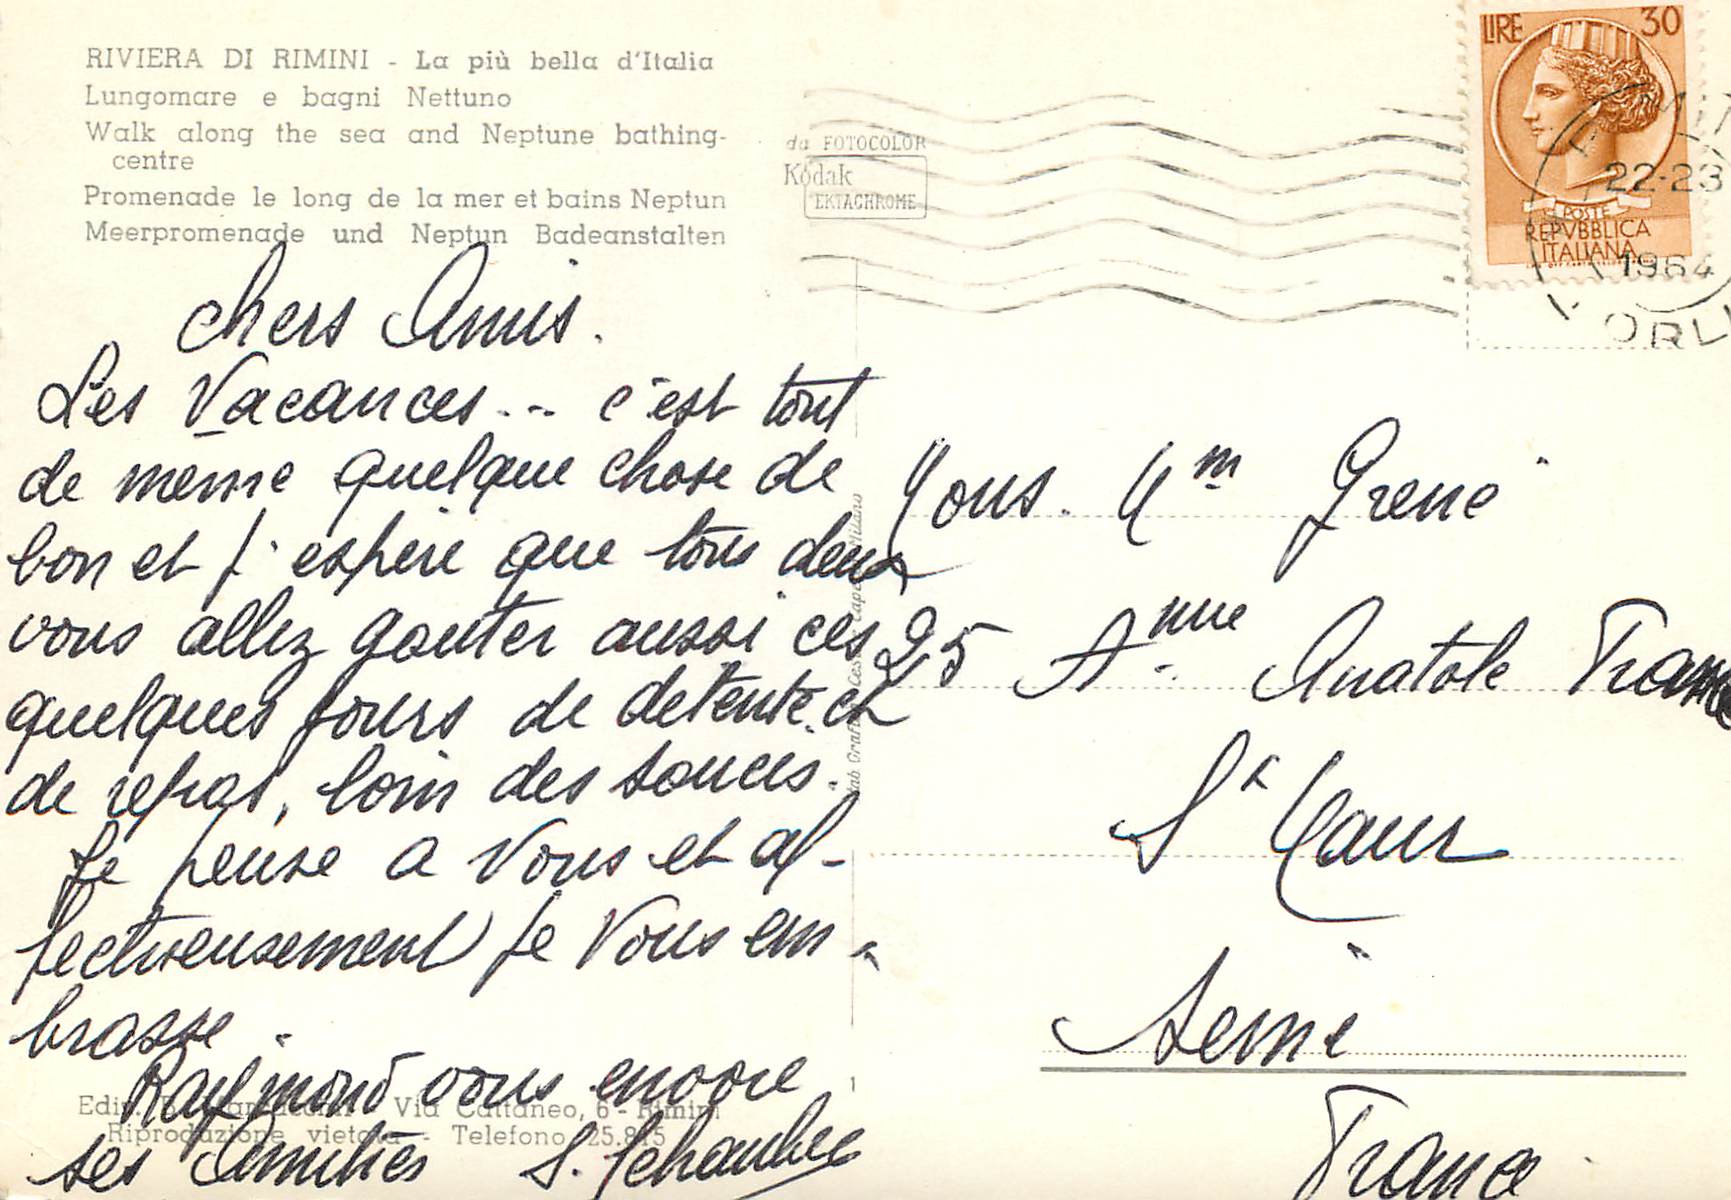 RIVIERA DI RIMINI - La più bella d'Italia
Lungomare e bagni Nettuno
Walk along the sea and Neptune bathing-
centre
Promenade le long de la mer et bains Neptun
Meerpromenade und Neptun Badeanstalten
da FOTOCOLOR
Kodak
EKTACHROME
LIRE 30
POSTE
REPVBBLICA
ITALIANA
22-23
1964
Chers Amis.
Les Vacances... c'est tout
de même quelque chose de
bon et j'espère que tous deux
vous allez gouter aussi ces
quelques jours de détente et
de repos, loin des soucis.
Je pense a Vous et af-
fectueusement je Vous em-
brasse.
Raymond vous envoie
ses Amitiés S.
Mons. Mm
25 Anue Anatole France
St Maur
Seine
France
Via Cattaneo, 6 - Rimini
Riproduzione vietata - Telefono 25.815